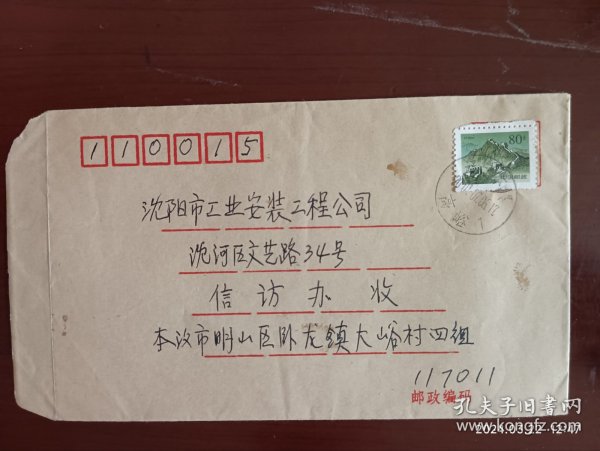 80分
110015
沈阳市工业安装工程公司
沈河区文艺路34号
信访办收
本汉市明山区卧龙镇大峪村四组
117011
邮政编码
孔夫子旧书网
www.kongfz.com
2024.03.22 12:47